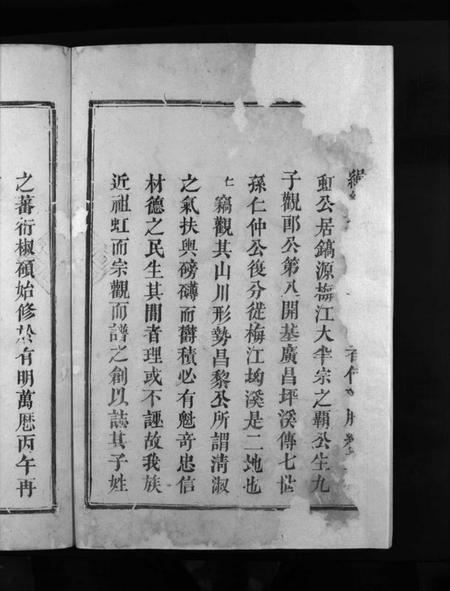 虹公居鎬源梅江大半宗之霸公生九
子觀郎公第八開基廣昌坪溪傳七世
孫仁仲公後分徙梅江坳溪是二地也
仁竊觀其山川形勢昌黎公所謂清淑
之氣扶輿磅礴而鬱積必有魁奇忠信
材德之民生其間者理或不誣故我族
近祖虹而宗觀而譜之創以誌其子姓
之蕃衍椒頎始修於有明萬曆丙午再